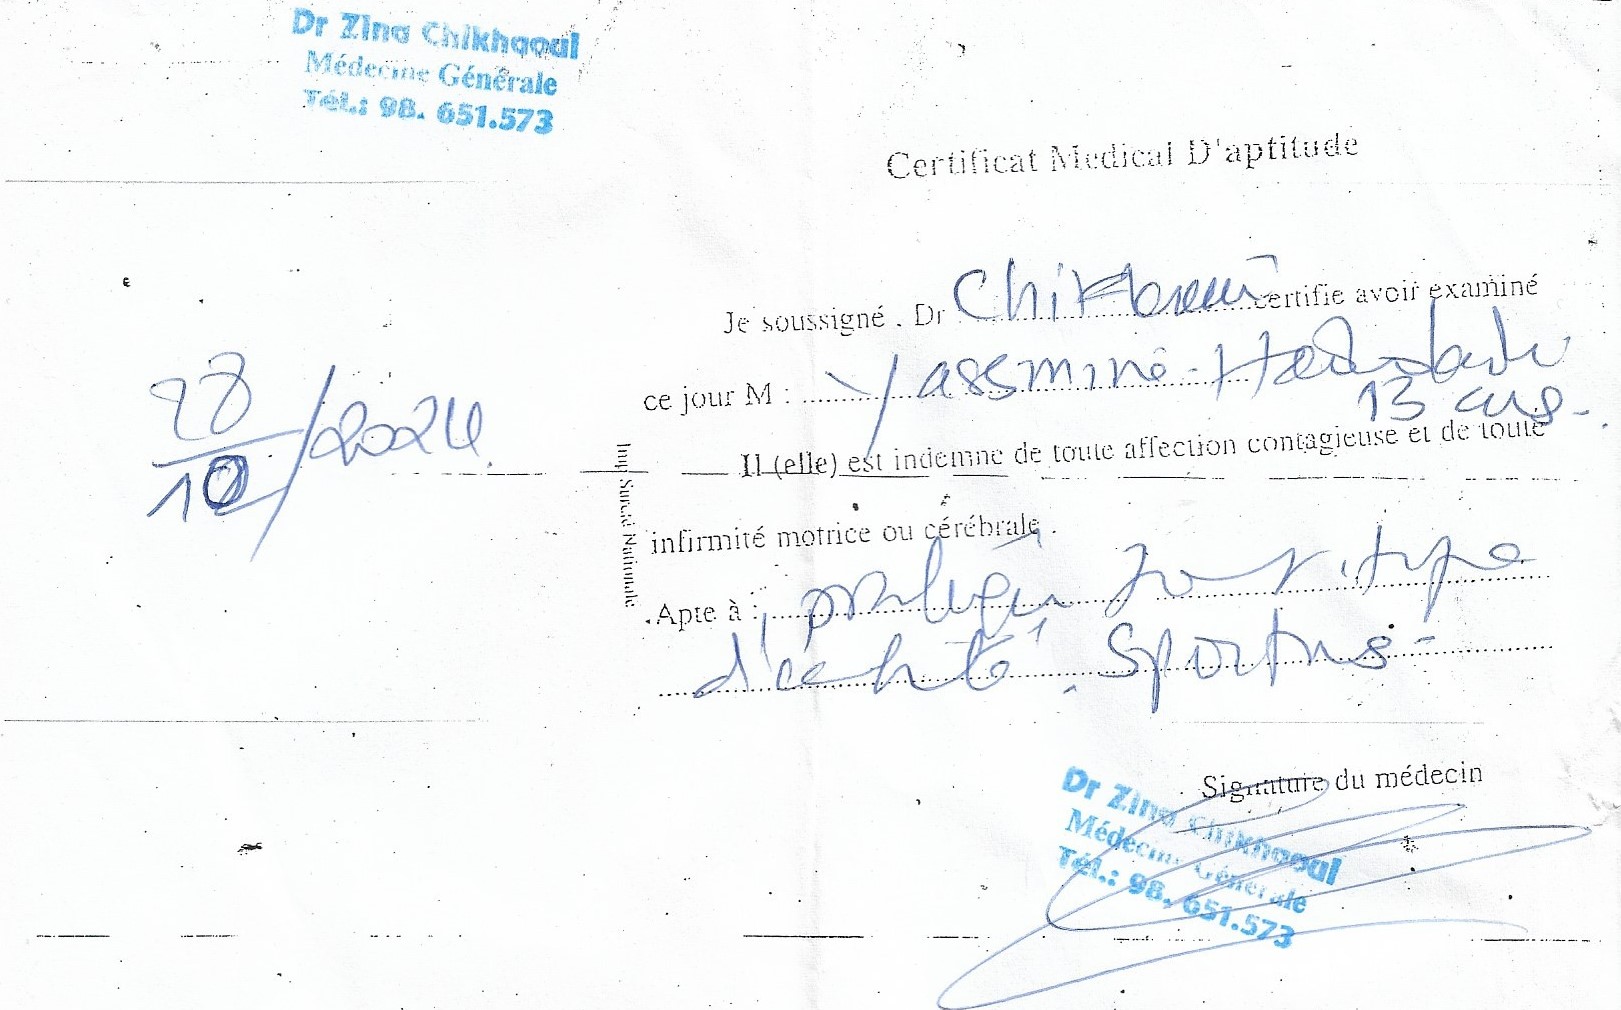 Dr Zina Chikhaoui
Médecine Générale
Tél.: 98. 651.573
Certificat Medical D'aptitude
Je soussigné . Dr Chikhaoui certifie avoir examiné
ce jour M : Yassmine
13 ans.
28/10/2024
Il (elle) est indemne de toute affection contagieuse et de toute
infirmité motrice ou cérébrale .
Imp Sureté Nationale
Apte à : pratiquer tout type
d'activité sportive
Signature du médecin
Dr Zina Chikhaoui
Médecine Générale
Tél.: 98. 651.573